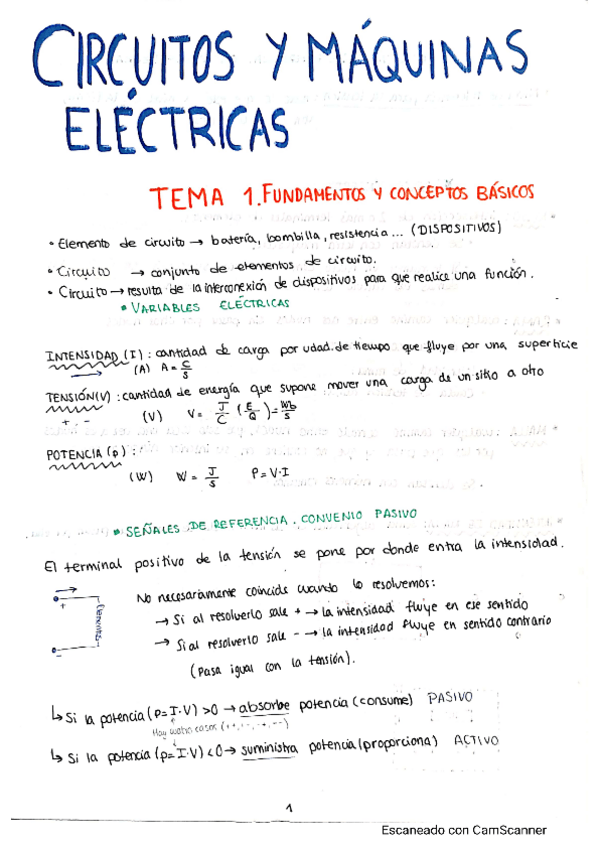 CIRCUITOS Y MÁQUINAS
ELÉCTRICAS
TEMA 1. FUNDAMENTOS Y CONCEPTOS BÁSICOS
• Elemento de circuito → batería, bombilla, resistencia... (DISPOSITIVOS)
• Circuito → conjunto de elementos de circuito.
• Circuito → resulta de la interconexión de dispositivos para que realice una función.
* VARIABLES ELÉCTRICAS
INTENSIDAD (I) : cantidad de carga por udad. de tiempo que fluye por una superficie
(A) A = C/s
TENSIÓN (V) : cantidad de energía que supone mover una carga de un sitio a otro
+ - (V) V = J/C (E/Q) = Wb/s
POTENCIA (p) :
(W) W = J/s P = V·I
* SEÑALES DE REFERENCIA. CONVENIO PASIVO
El terminal positivo de la tensión se pone por donde entra la intensidad.
No necesariamente coincide cuando lo resolvemos:
→ Si al resolverlo sale + → la intensidad fluye en ese sentido
→ Si al resolverlo sale - → la intensidad fluye en sentido contrario
(Pasa igual con la tensión).
+ Elemento -
↳ Si la potencia (p = I·V) > 0 → absorbe potencia (consume) PASIVO
Hay cuatro casos (++, +-, -+, --)
↳ Si la potencia (p = I·V) < 0 → suministra potencia (proporciona) ACTIVO
1
Escaneado con CamScanner